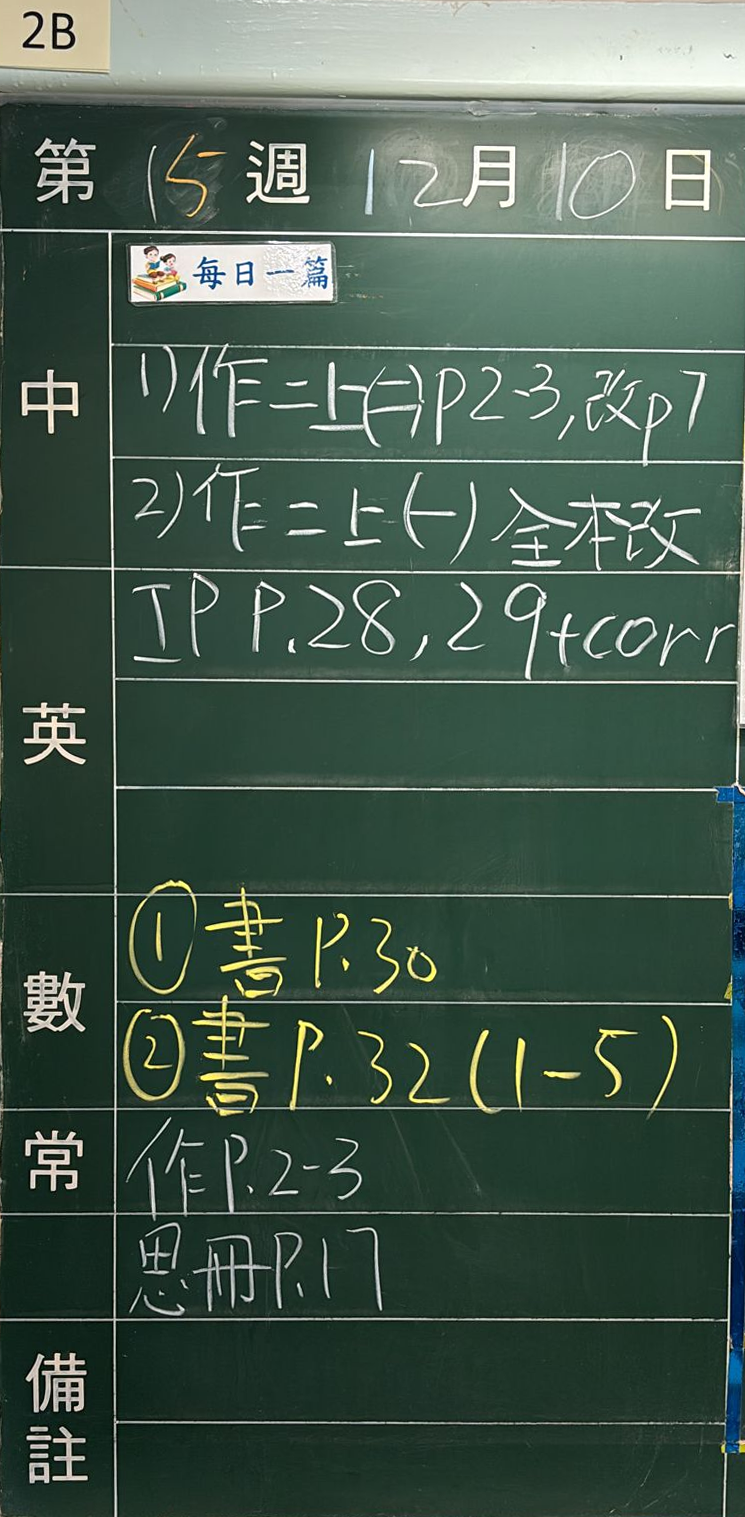 2B
第 15 週 12月10日
每日一篇
中
1)作二上(二)P2-3,改p7
2)作二上(一)全本改
英
IP P.28,29+corr
數
①書P.30
②書P.32(1-5)
常
作P.2-3
思冊P.17
備註